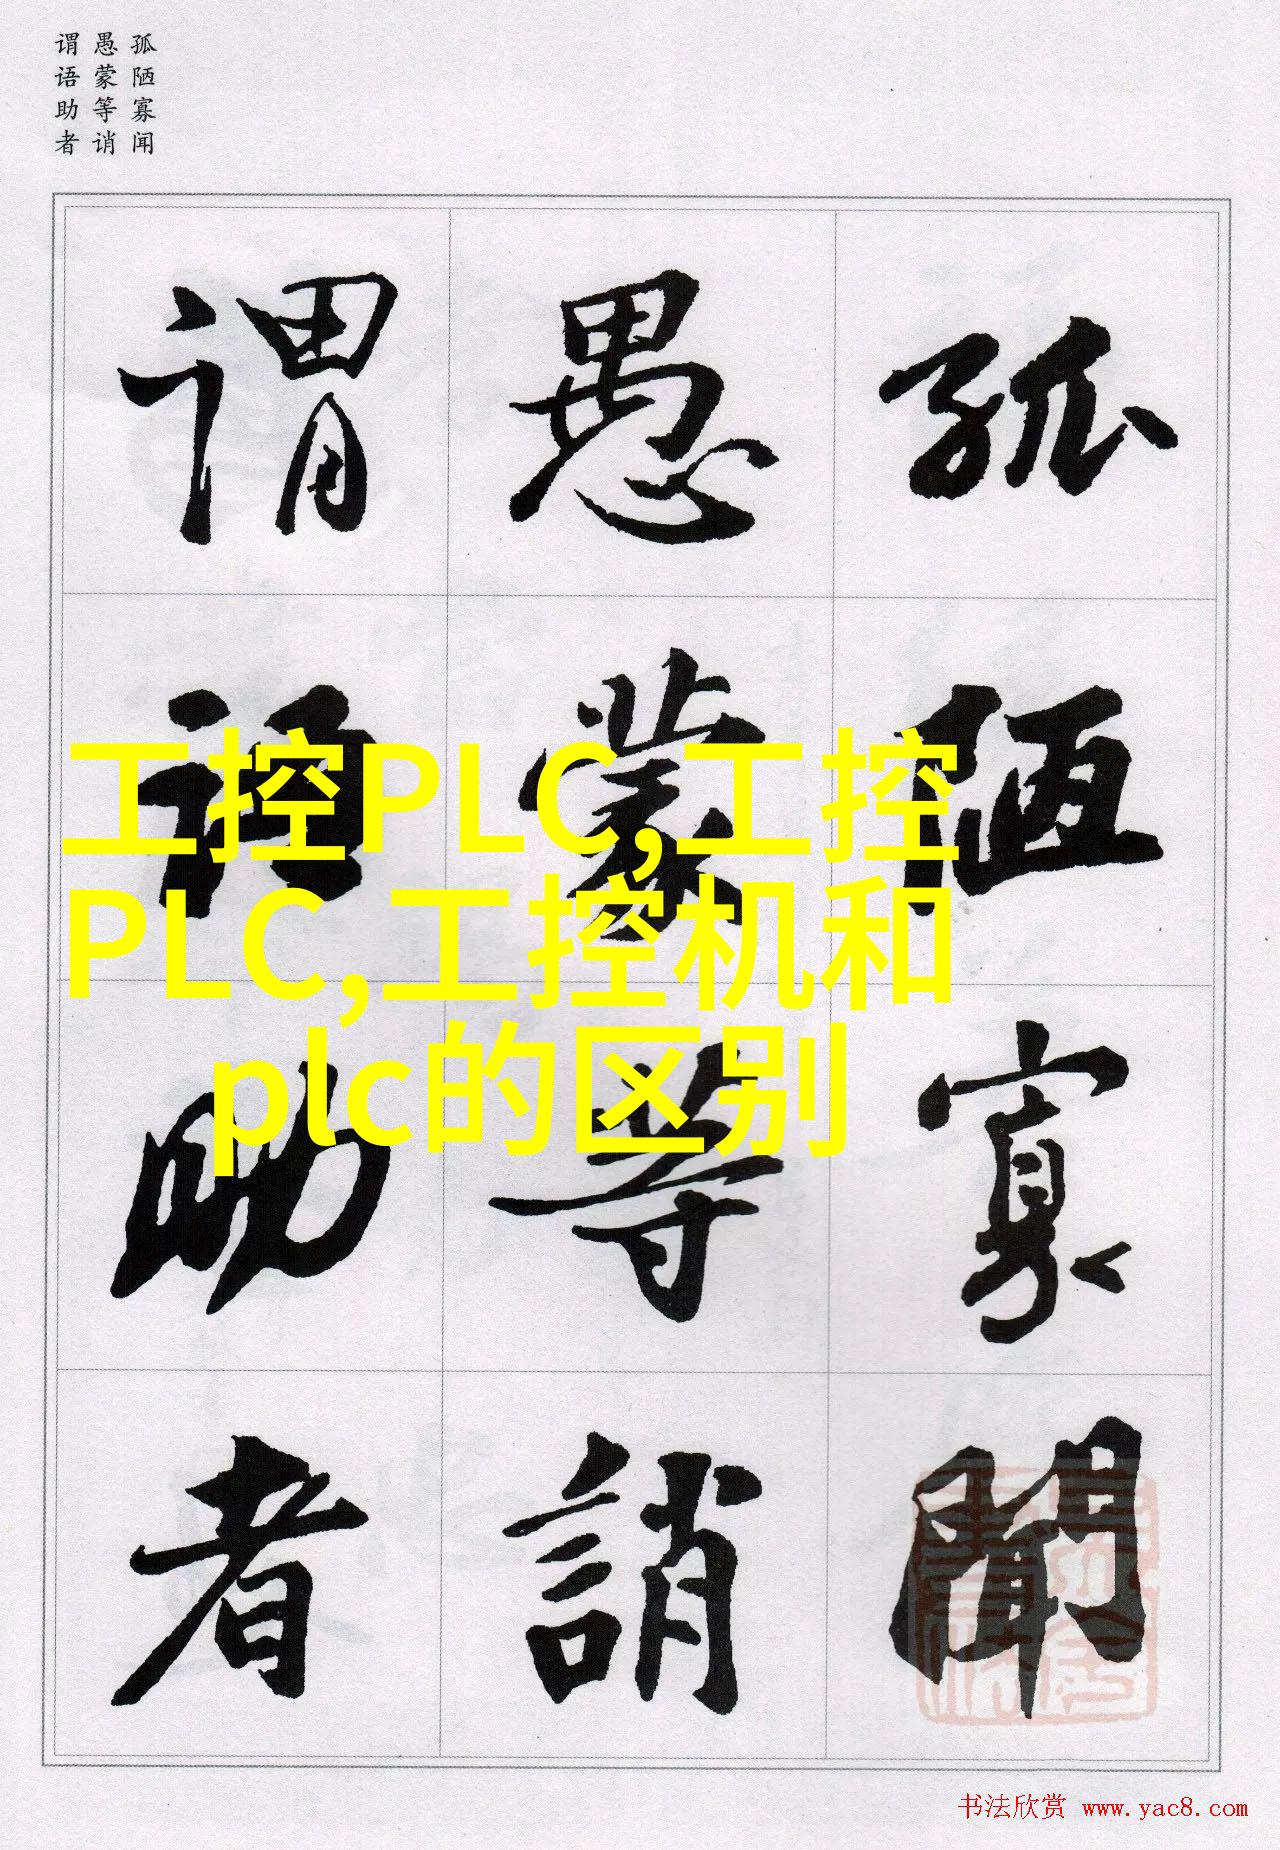 孤陋寡闻
愚蒙等诮
谓语助者
孤陋寡聞
愚蒙等誚
谓语助者
工控PLC,工控
PLC,工控机和
plc的区别
书法欣赏 www.yac8.com